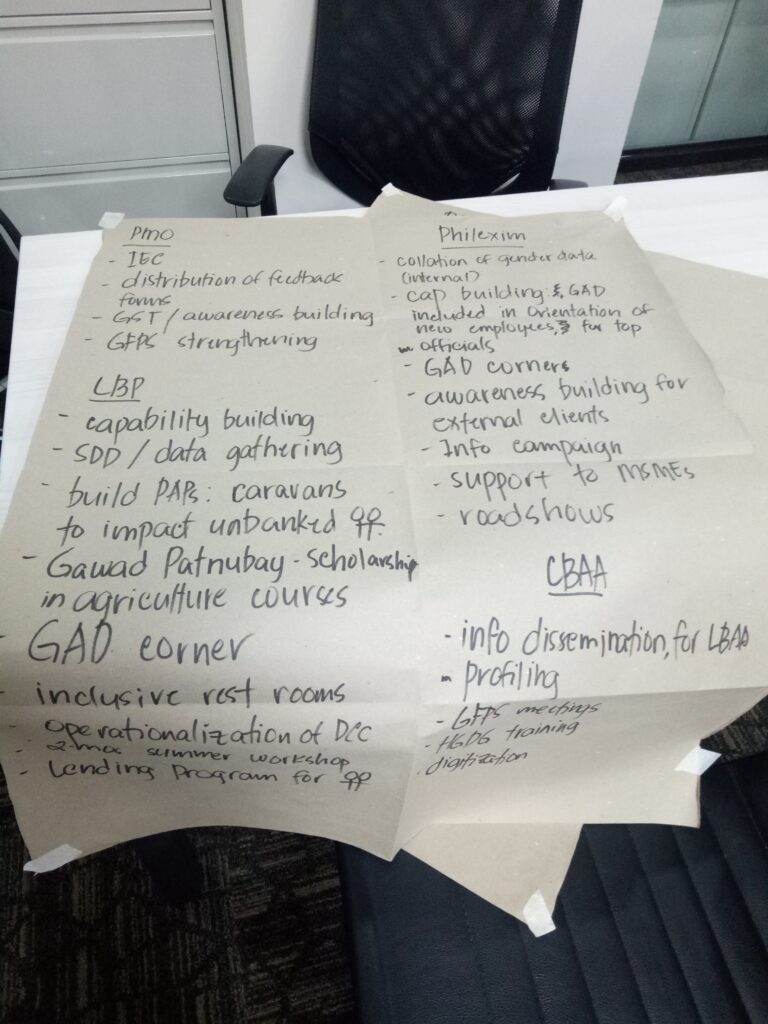 PMO
- IEC
- distribution of feedback
forms
- GST / awareness building
- GFPS strengthening
LBP
- capability building
- SDD / data gathering
- build PAPs: caravans
to impact unbanked ♀♀.
- Gawad Patnubay - scholarship
in agriculture courses
- GAD corner
- inclusive rest rooms
- operationalization of DCC
- 2-mos summer workshop
- Lending Program for ♀♀
Philexim
- collation of gender data
(internal)
- cap building: GAD
included in orientation of
new employees, for top
officials
- GAD corners
- awareness building for
external clients
- Info campaign
- support to MSMEs
- roadshows
CBAA
- info dissemination, for LBAA
- profiling
- GFPS meetings
- HGDG training
- digitization